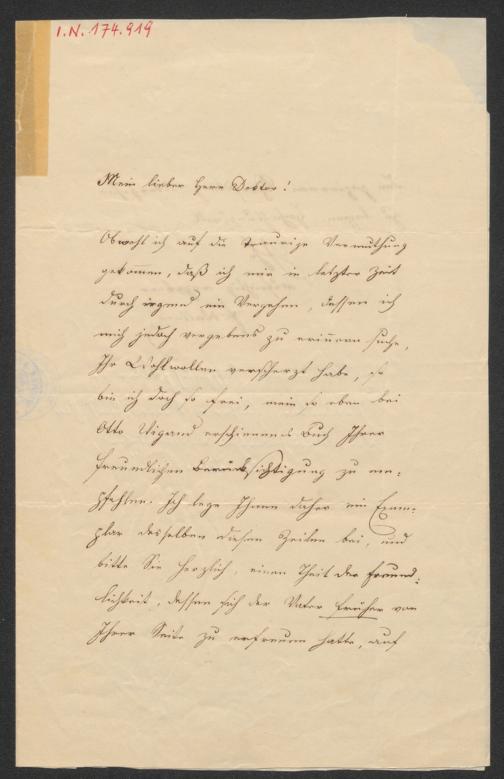 I.N. 174.919
Mein lieber Herr Doktor!
Obwohl ich auf die traurige Vermuthung
gekommen, daß ich mir in letzter Zeit
durch irgend ein Vergehen, dessen ich
mich jedoch vergebens zu erinnern suche,
Ihr Wohlwollen verscherzt habe, so
bin ich doch so frei, mein so eben bei
Otto Wigand erschienenes Buch Ihrer
freundlichen Berücksichtigung zu em-
pfehlen. Ich lege Ihnen daher ein Exem-
plar desselben diesen Zeilen bei, und
bitte Sie herzlich, einen Theil der freund-
lichkeit, dessen sich der Vater früher von
Ihrer Seite zu erfreuen hatte, auf